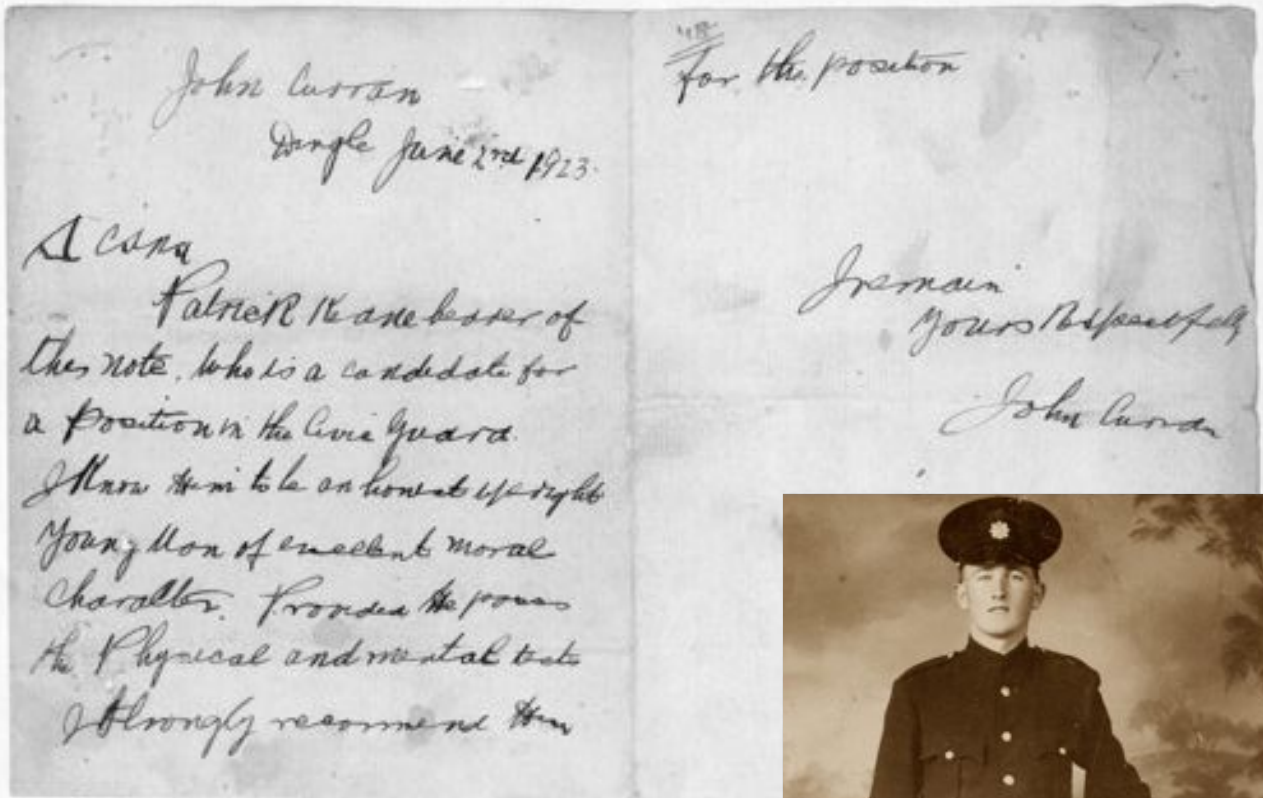 John Curran
Dingle June 2nd 1923.
A Cara
Patrick Keane bearer of
this note. Who is a candidate for
a Position in the Civic Guard.
I Know Him to be an honest upright
Young Man of excellent moral
Character. Provided He passes
the Physical and mental tests
I Strongly recommend Him
for the position
I remain
Yours Respectfully
John Curran